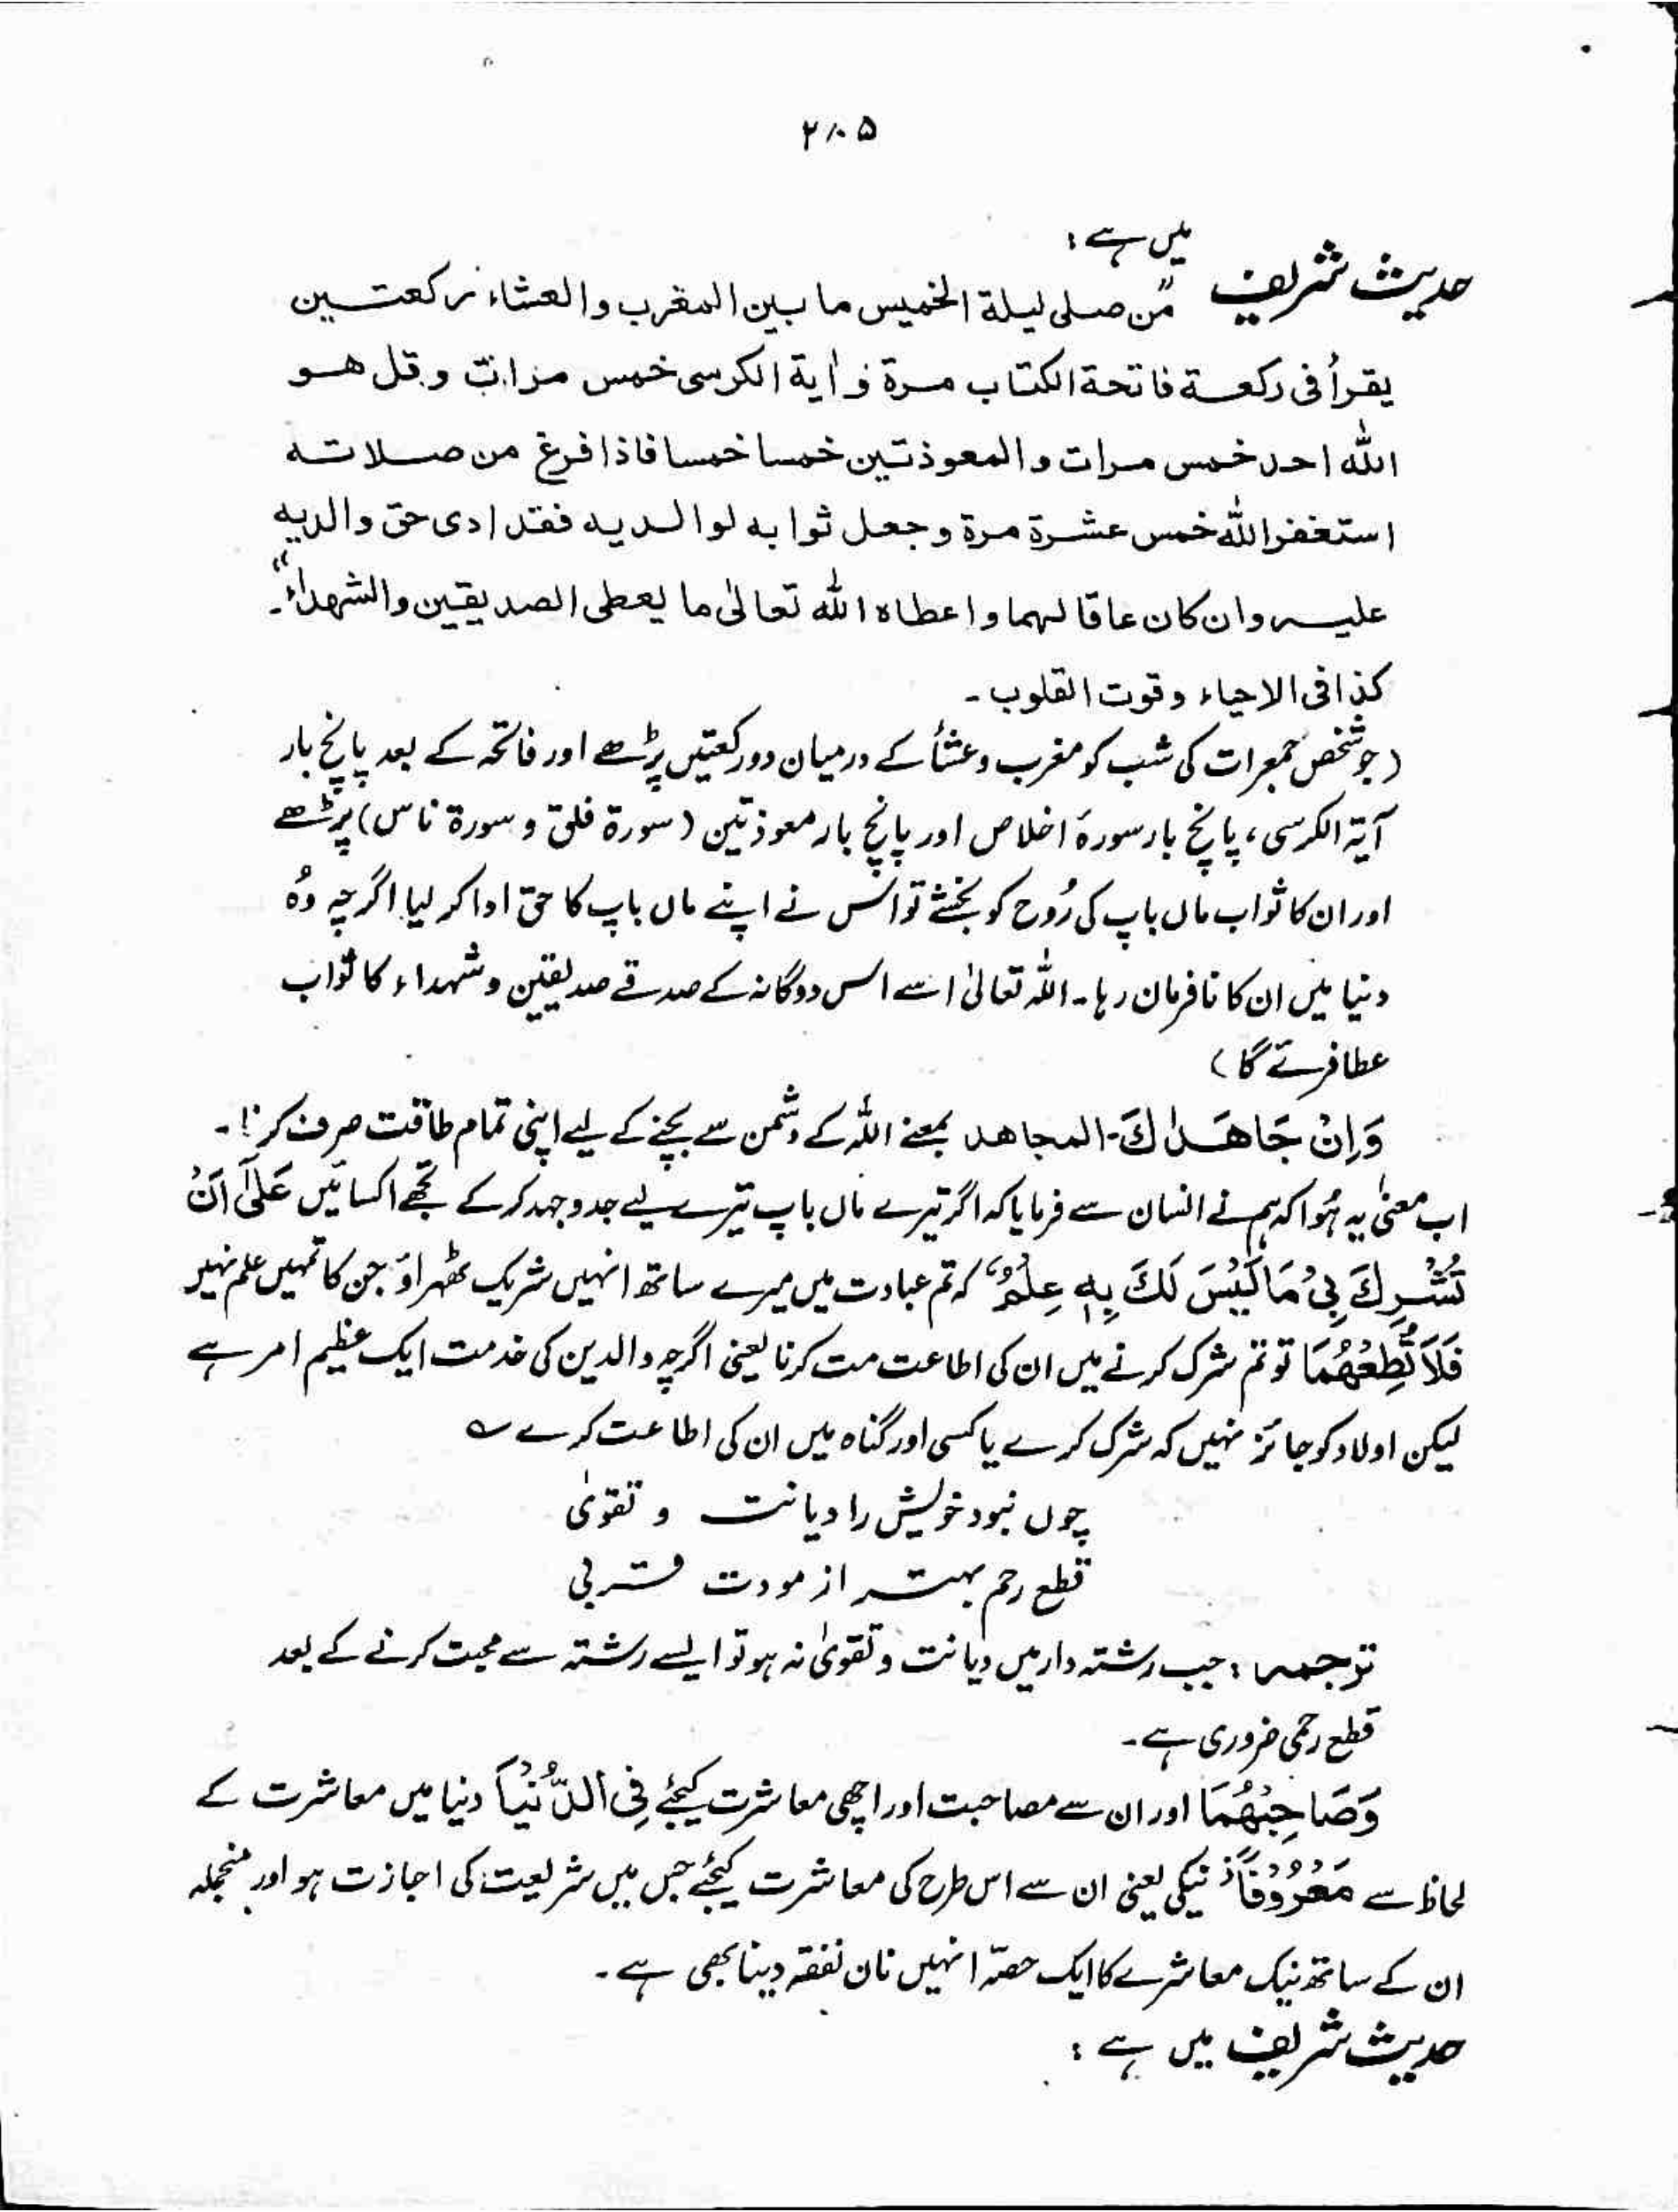 ۲۸۵
حدیث شریف میں ہے :
"من صلى ليلة الخميس ما بين المغرب والعشاء ركعتين
يقرأ فى ركعة فاتحة الكتاب مرة و اٰية الكرسى خمس مرات و قل هو
الله احد خمس مرات و المعوذتين خمسا خمسا فاذا فرغ من صلاته
استغفر الله خمس عشرة مرة و جعل ثوابه لوالديه فقد ادى حق والديه
عليه وان كان عاقا لهما و اعطاه الله تعالىٰ ما يعطى الصديقين والشهداء"۔
كذا فى الاحياء و قوت القلوب ۔
(جو شخص جمعرات کی شب کو مغرب و عشأ کے درمیان دو رکعتیں پڑھے اور فاتحہ کے بعد پانچ بار
آیۃ الکرسی ، پانچ بار سورۂ اخلاص اور پانچ بار معوذتین (سورۃ فلق و سورۃ ناس) پڑھے
اور ان کا ثواب ماں باپ کی رُوح کو بخشے تو اس نے اپنے ماں باپ کا حق ادا کر لیا اگرچہ وُہ
دنیا میں ان کا نافرمان رہا۔ اللہ تعالیٰ اسے اس دوگانہ کے صدقے صدیقین و شہداء کا ثواب
عطا فرئے گا )
وَاِنْ جَاهَدٰكَ ۔ المجاهد بمعنے اللہ کے دشمن سے بچنے کے لیے اپنی تمام طاقت صرف کرنا ۔
اب معنیٰ یہ ہُوا کہ ہم نے انسان سے فرمایا کہ اگر تیرے ماں باپ تیرے لیے جدوجہد کر کے تجھے اکسائیں عَلٰٓى اَنْ
تُشْرِكَ بِىْ مَا لَيْسَ لَكَ بِهٖ عِلْمٌ ، کہ تم عبادت میں میرے ساتھ انہیں شریک ٹھہراؤ جن کا تمہیں علم نہیں
فَلَا تُطِعْهُمَا تو تم شرک کرنے میں ان کی اطاعت مت کرنا یعنی اگرچہ والدین کی خدمت ایک عظیم امر ہے
لیکن اولاد کو جائز نہیں کہ شرک کرے یا کسی اور گناہ میں ان کی اطاعت کرے ؎
چوں نبود خویش را دیانت و تقویٰ
قطع رحم بہتر از مودت قربی
ترجمہ : جب رشتہ دار میں دیانت و تقویٰ نہ ہو تو ایسے رشتہ سے محبت کرنے کے بعد
قطع رحمی ضروری ہے ۔
وَصَاحِبْهُمَا اور ان سے مصاحبت اور اچھی معاشرت کیجئے فِى الدُّنْيَا دنیا میں معاشرت کے
لحاظ سے مَعْرُوْفًا نیکی یعنی ان سے اس طرح کی معاشرت کیجئے جس میں شریعت کی اجازت ہو اور منجملہ
ان کے ساتھ نیک معاشرے کا ایک حصّہ انہیں نان نفقہ دینا بھی ہے ۔
حدیث شریف میں ہے :